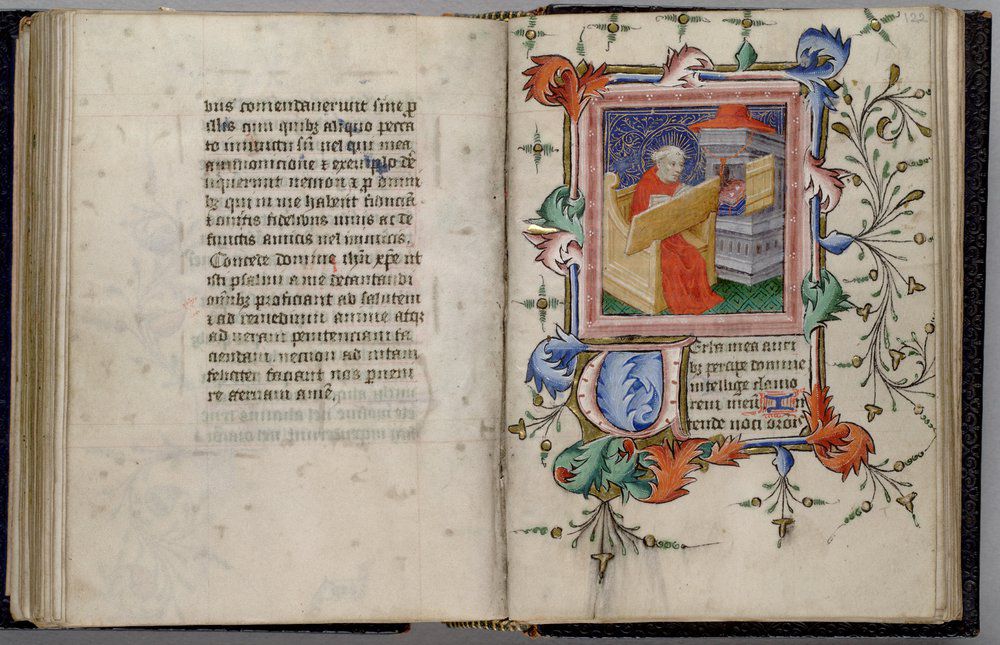 bus comendauerunt sine p
illis cum quibz aliquo pecca
to inuicũ sũ uel qui mea
ammonicione & exemplo de
liquerunt necnon & p omni
bz qui in me habent fiduciã
& cũctis fidelibus uiuis ac de
functis amicis uel inimicis.
Concede domine ihũ xp̃e ut
isti psalmi a me decantandi
oĩnibz proficiant ad salutem
& ad remedium anime atqz
ad ueram penitenciam fa
ciendam. necnon ad uitam
feliciter faciant nos pueni
re eternam amẽ.
122
Verba mea auri
bz percipe domine
intellige clamo
rem meũ In
tende uoci oroĩs